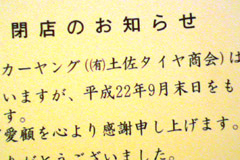 閉店のお知らせ
カーヤング((有)土佐タイヤ商会)は
いますが、平成22年9月末日をも
す。
ご愛顧を心より感謝申し上げます。
りがとうございました。